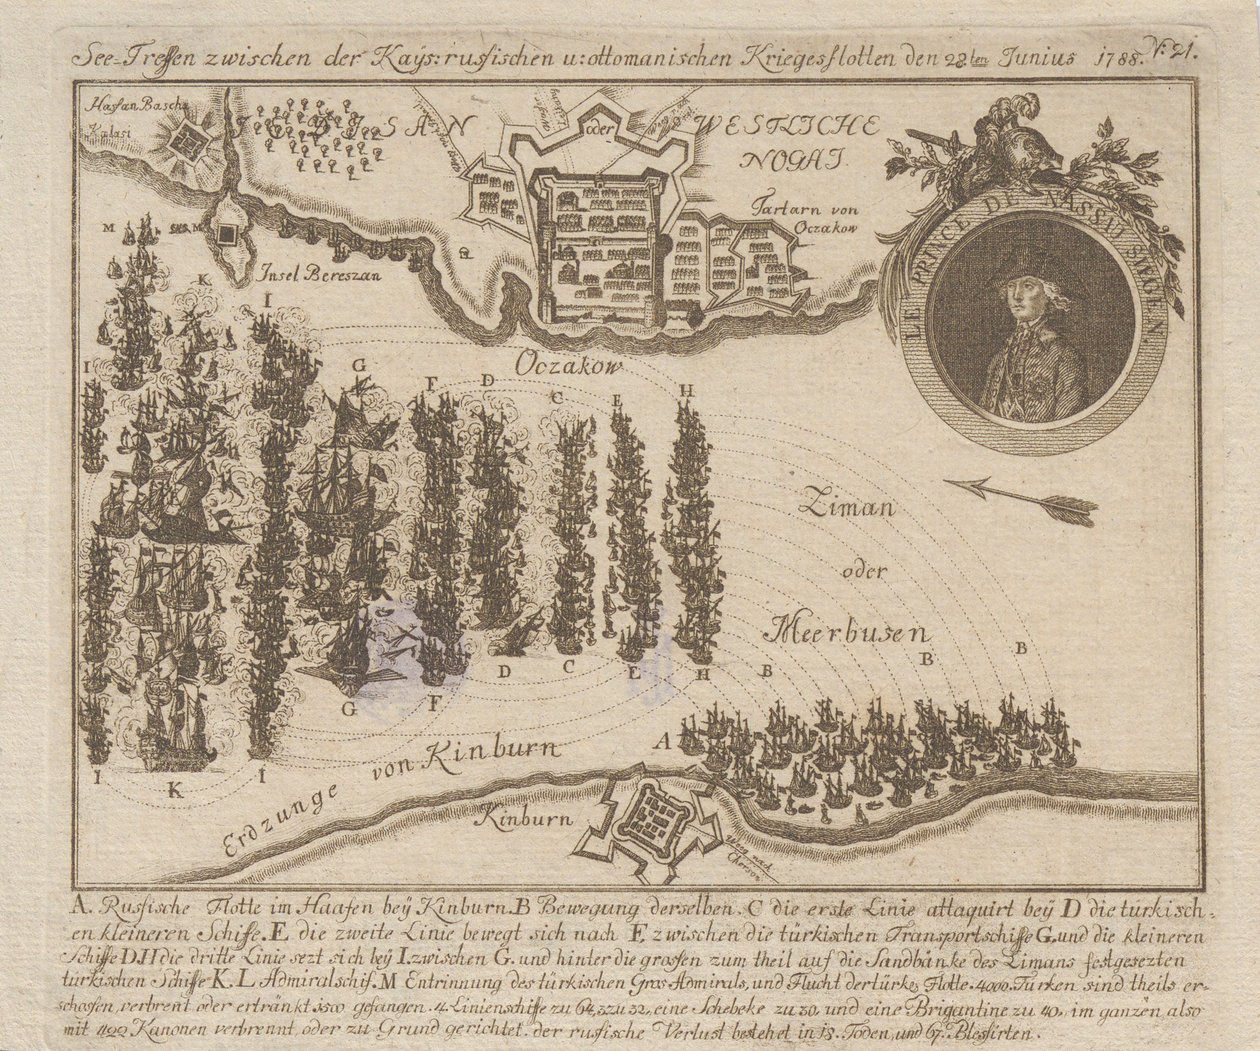 See-Treffen zwischen der Kaÿs: russischen u: ottomanischen Kriegesflotten den 28ten Junius 1788. N: 21.
Hassan Bascha
OTSAN oder WESTLICHE
NOGAI.
Tartarn von
Oczakow
LE PRINCE DE NASSU SIWEGEN
Insel Bereszan
Oczakow
M
M
K
I
I
G
F
D
C
E
H
Liman
oder
Meerbusen
B
B
B
D
C
E
H
G
F
A
I
K
I
Erdzunge von Kinburn
Kinburn
Weeg nach
Cherson
A. Russische Flotte im Haafen beÿ Kinburn. B Bewegung derselben. C die erste Linie attaquirt beÿ D die türkisch-
en kleineren Schiffe. E die zweite Linie bewegt sich nach F zwischen die türkischen Transportschiffe G. und die kleineren
Schiffe D. H die dritte Linie sezt sich beÿ I. zwischen G. und hinter die grossen zum theil auf die Sandbänke des Limans festgesezten
türkischen Schiffe K. L Admiralschif. M Entrinnung des türkischen Gros Admirals, und Flucht der türk: Flotte. 4000. Türken sind theils er-
schossen, verbrent oder ertränkt. 3500 gefangen. 4. Linienschiffe zu 64, 3 zu 32, eine Schebeke zu 30, und eine Brigantine zu 40, im ganzen also
mit 422 Kanonen verbrennt, oder zu Grund gerichtet. der russische Verlust bestehet in 18. Toden, und 67. Blessirten.